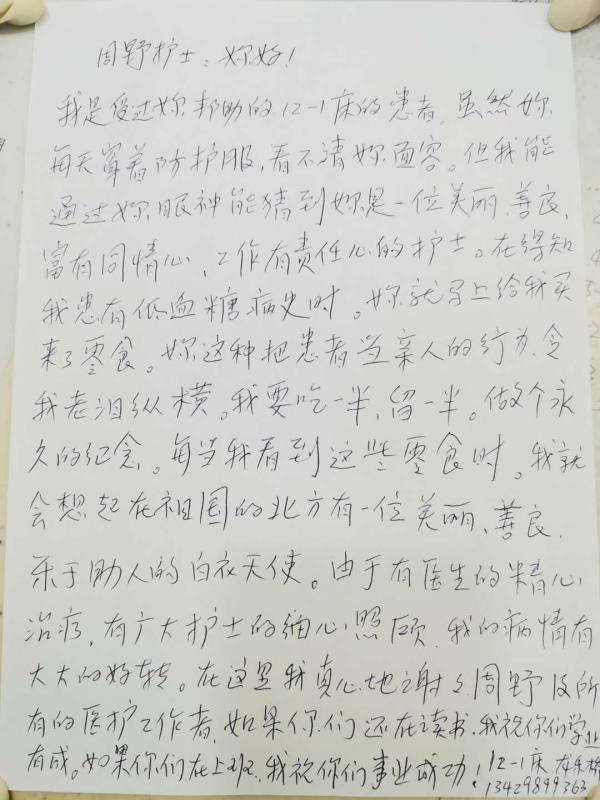 周野护士：妳好！
我是受过妳帮助的12-1床的患者，虽然妳
每天穿着防护服，看不清妳面容。但我能
通过妳眼神能猜到妳是一位美丽、善良、
富有同情心、工作有责任心的护士。在得知
我患有低血糖病史时。妳就马上给我买
来了零食。妳这种把患者当亲人的行为，令
我老泪纵横。我要吃一半，留一半。做个永
久的纪念。每当我看到这些零食时。我就
会想起在祖国的北方有一位美丽、善良、
乐于助人的白衣天使。由于有医生的精心
治疗，有广大护士的细心照顾，我的病情有
大大的好转。在这里我真心地谢谢周野及所
有的医护工作者，如果你们还在读书，我祝你们学业
有成。如果你们在上班，我祝你们事业成功！12-1床
13429899363